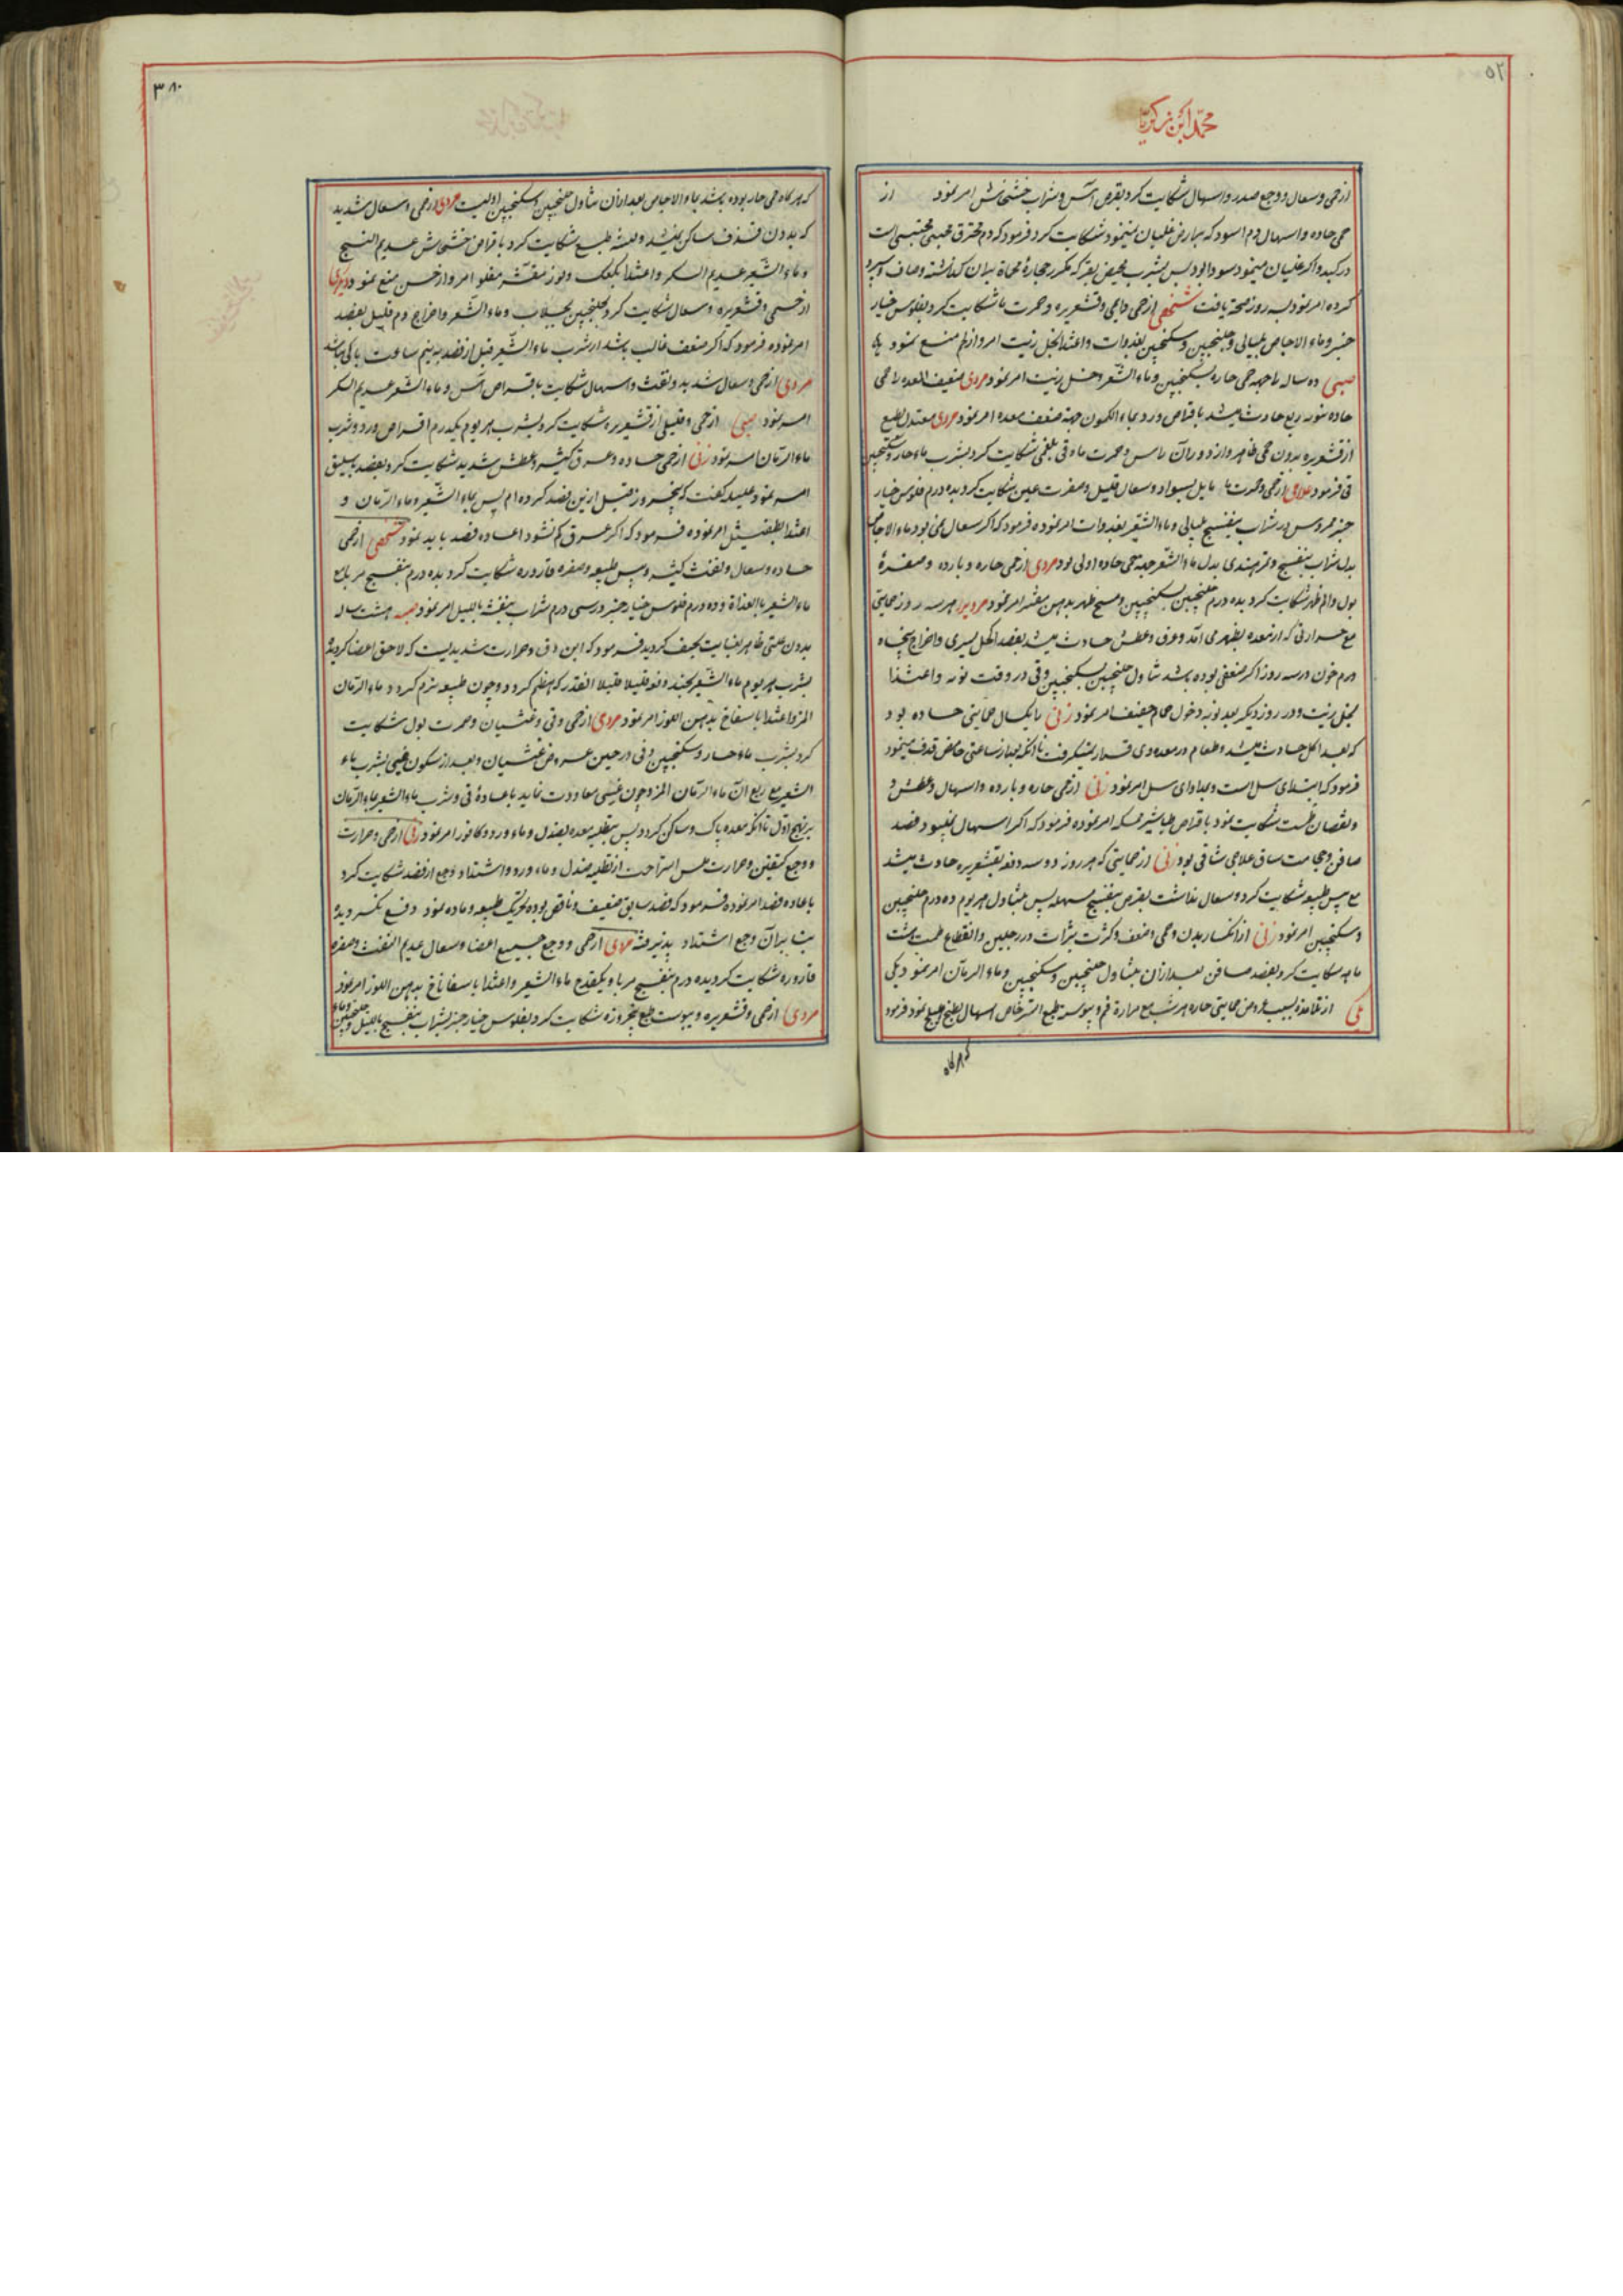 محمد ابن زکریا
ازحمی وسعال ووجع صدر واسهال شکایت کرد بقرص آس وشراب خشخاش امر نمود از
حمی حاده واسهال دم اسود که بر ارض غلیان مینمود شکایت کرد فرمود که دم محترق
در کبد واکر غلیان مینمود سودا بود پس بشرب مخیض بقر که مکرر حجارهٔ محماة بران کذاشته وصاف و سرد
کرده امر نمود بسه روز صحت یافت شخصی ازحمی دایمی وقشعریره وحمرت ماء شکایت کرد بفلوس خیار
جنبر وماء الاجاص بلیالی وجلنجبین وسکنجبین بغدوات واغتذا بخل زیت امر وازلحم منع نمود
صبی ده ساله را جهة حمی حاره بسکنجبین وماء الشعر وخل زیت امر نمود مردی ضعیف المعده را حمی
حاده بنوبه ربع حادث میشد باقراص ورد وبماء الکمون جهة ضعف معده امر نمود مردی معتدل الطبع
از قشعریره بدون حمی ظاهر وازدوران راس وحمرت ماء وقی بلغمی شکایت کرد بشرب ماء حار وسکنجبین
قی فرمود غلامی ازحمی وحمرت ماء مایل بسواد وسعال قلیل وصفرت عین شکایت کرد بده درم فلوس خیار
جنبر ممروس در شراب بنفسج بلیالی وماء الشعیر بغدوات امر نموده فرمود که اکر سعال نمی بود ماء الاجاص
بدل شراب بنفسج وتمر هندی بدل ماء الشعر جهة حمی حاده اولی بود مردی ازحمی حاره وبارده وصفرهٔ
بول والم ظهر شکایت کرد بده درم جلنجبین بسکنجبین ومسح ظهر بدهن مفتر امر نمود مردیرا هر سه روز حمایتی
مع حرارتی که از معده بظهر می آمد وعرق وعطش حادث میشد بفصد اکحل یسری واخراج پنجاه
درم خون در سه روز اکر ضعفی نبوده باشد تناول جلنجبین بسکنجبین وقی در وقت نوبه واغتذا
بخل زیت ودر روز دیکر بعد نوبه دخول حمام خفیف امر نمود زنی را یکسال حمایتی حاده بود
که بعد اکل حادث میشد وطعام در معده وی قرار نمیکرفت تا انکه بعد از ساعتی حامض قذف مینمود
فرمود که ابتدای سل است وبمداوای سل امر نمود زنی ازحمی حاره وبارده واسهال وعطش و
ونقصان طمث شکایت نمود باقراص طباشیر ممسکه امر نموده فرمود که اکر اسهال نمیبود فصد
صافن وحجامت ساق علاجی شافی بود زنی از حمایتی که هر روز دو سه دفعه بقشعریره حادث میشد
مع یبس طبیعه شکایت کرد وسعال نداشت بقرص بنفسج مسهله پس بتناول هر یوم ده درم جلنجبین
وسکنجبین امر نمود زنی از انکسار بدن وحمی وضعف وکثرت بثرات در رجلین وانقطاع طمث هشت
ماهه شکایت کرد بفصد صافن بعد ازان بتناول جلنجبین وسکنجبین وماء الرمان امر نمود یکی
از تلامذه بسبب عروض حمایتی حاره هر شب مع مرارة فم ویبوسة طبع استرخاص اسهال بطبخ هلیلج نمود فرمود
که هرکاه
۳۸۰
که هرکاه حمی حار بوده باشد بماء الاجاص بعد ازان تناول جلنجبین وسکنجبین اولیست مردی ازحمی وسعال شدید
که بدون قذف ساکن نمیشد ولینة طبع شکایت کرد باقراص خشخاش عدیم البنج
وماء الشعیر عدیم السکر واغتذا بکعک ولوز مقشر مقلو امر وازخس منع نمود دیکری
ازحمی وقشعریره وسعال شکایت کرد بجلنجبین بجلاب وماء الشعر واخراج دم قلیل بفصد
امر نموده فرمود که اکر ضعف غالب باشد از شرب ماء الشعیر قبل از فصد به نیم ساعت باکی نباشد
مردی ازحمی وسعال شدید ونفث واسهال شکایت باقراص آس وماء الشعر عدیم السکر
امر نمود صبی ازحمی وقلیلی از قشعریره شکایت کرد بشرب هر یوم یکدرم اقراص ورد وشرب
ماء الرمان امر نمود زنی ازحمی حاده وعرق کثیر وعطش شدید شکایت کرد بفصد باسلیق
امر نمود علیله کفت که پنجروز قبل ازین فصد کرده ام پس بماء الشعیر وماء الرمان و
اغتذا بطفشیل امر نموده فرمود که اکر عرق کم نشود اعاده فصد باید نمود شخصی ازحمی
حاده وسعال ونفث کثیر ویبس طبیعه وصفره قاروره شکایت کرد بده درم بنفسج مربا مع
ماء الشعیر بالغداة وده درم فلوس خیار جنبر در سی درم شراب بنفسج باللیل امر نمود هشت ساله
بدون علتی ظاهر بغایت نحیف کردید فرمود که این دق وحرارت شدیدیست که لاحق اعضا کردیده
بشرب هر یوم ماء الشعیر بچند دفعه قلیلا قلیلا انقدر که هضم کردد وچون طبیعه نرم کردد ماء الرمان
المز واغتذا باسفاناخ بدهن اللوز امر نمود مردی ازحمی وقی وغثیان وحمرت بول شکایت
کرد بشرب ماء حار وسکنجبین وقی در حین عروض غثیان وبعد از سکون غثی بشرب ماء
الشعیر مع ربع آن ماء الرمان المز وچون غثی معاودت نماید باعادهٔ قی وشرب ماء الشعیر وماء الرمان
بر نهج اول تا انکه معده پاک وساکن کردد پس بتطلیه معده بصندل وماء ورد وکافور امر نمود زنی ازحمی وحرارت
ووجع کتفین وحرارت ملمس استراحت از تطلیه صندل وماء ورد واشتداد وجع از فصد شکایت کرد
باعاده فصد امر نموده فرمود که فصد سابق ضعیف وناقص بوده تحریک طبیعه وماده نمود ودفع نکردیده
بنا بران وجع اشتداد پذیرفته مردی ازحمی ووجع جمیع اعضا وسعال عدیم النفث وصفره
قاروره شکایت کرد بده درم بنفسج مربا وبیکقدح ماء الشعیر واغتذا باسفاناخ بدهن اللوز امر نمود
مردی ازحمی وقشعریره ویبوست طبع پنجروزه شکایت کرد بفلوس خیار جنبر بشراب بنفسج باللیل وجلنجبین وماء